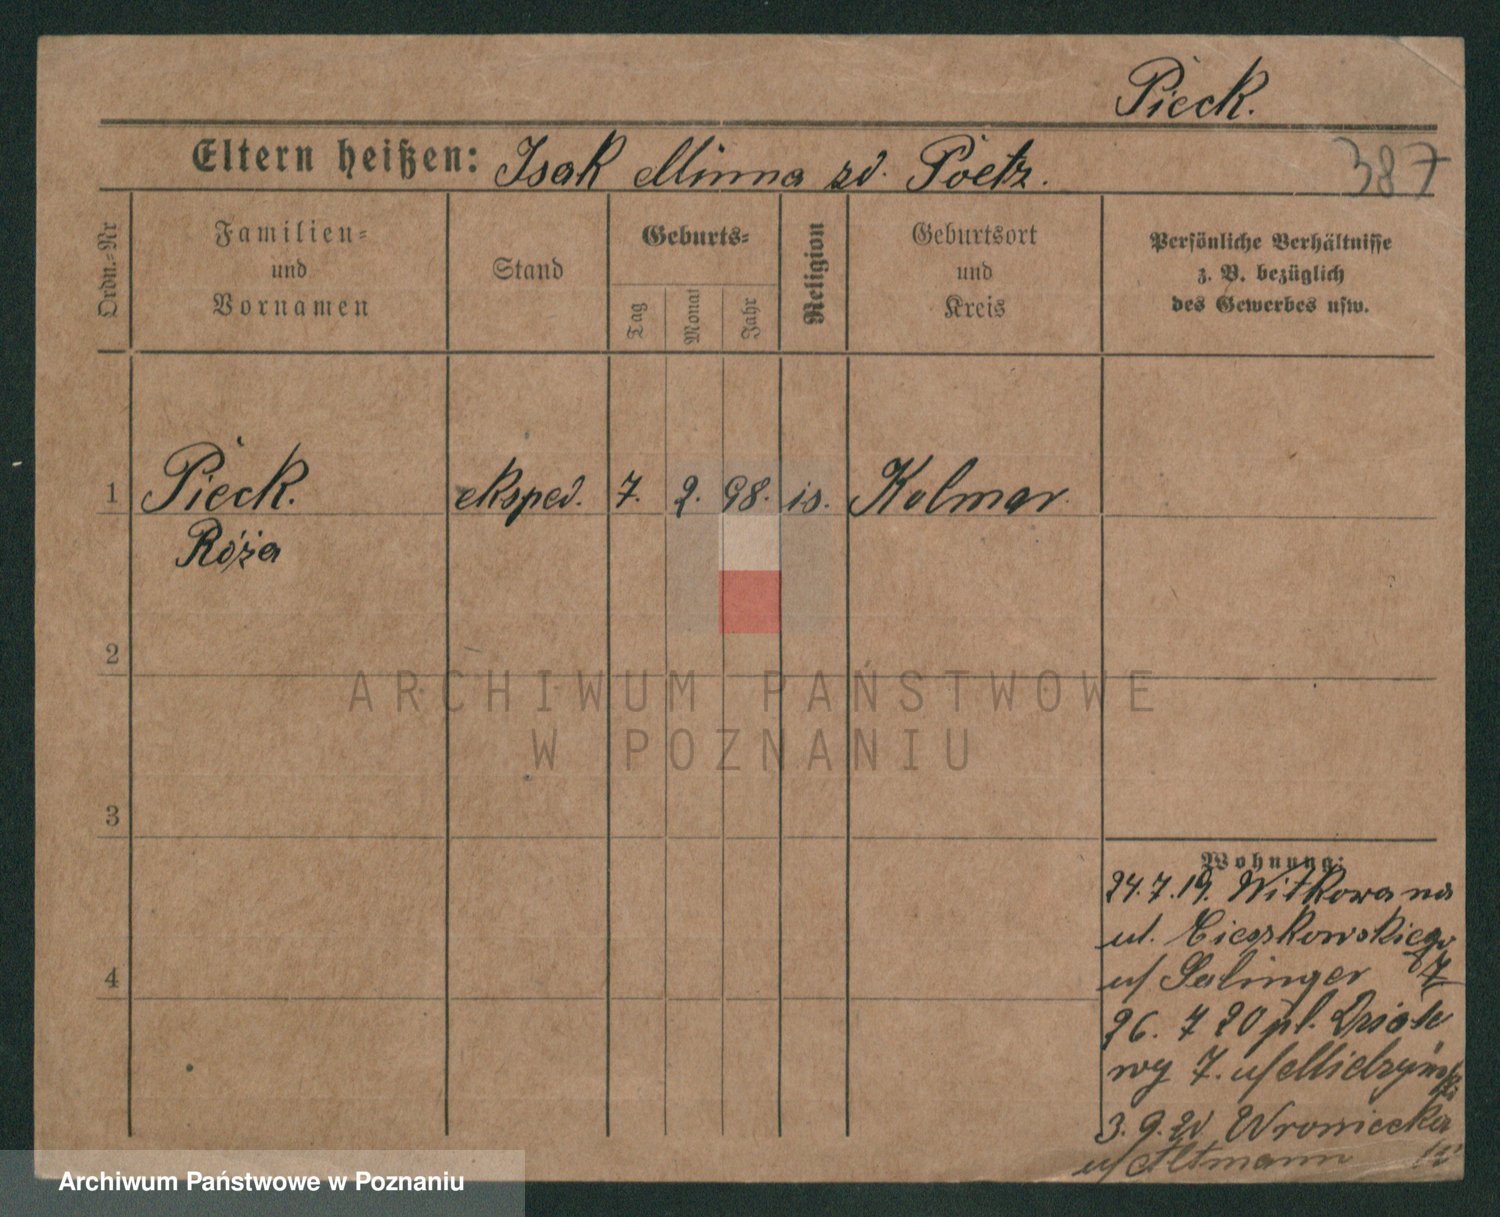 Pieck.
Eltern heißen: Isak Minna zd. Poetz.
387
Ordn.-Nr
Familien-
und
Vornamen
Stand
Geburts-
Tag
Monat
Jahr
Religion
Geburtsort
und
Kreis
Persönliche Verhältnisse
z. B. bezüglich
des Gewerbes usw.
1 Pieck. eksped. 7. 2. 98. is. Kolmar
Róża
2
ARCHIWUM PAŃSTWOWE
W POZNANIU
3
Wohnung:
24.7.19. Witkowa na
ul. Cieszkowskiego
u/ Salinger 7
4
26. 7 20 pl.
wy 7. u/
3. 9. 20 Wroniecka
u/ Altmann
Archiwum Państwowe w Poznaniu